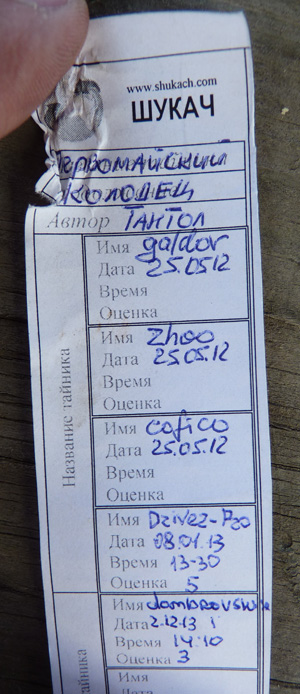 www.shukach.com
ШУКАЧ
Первомайский
Колодец
Автор Тантол
Название тайника
Имя galdor
Дата 25.05.12
Время
Оценка
Имя Zhoo
Дата 25.05.12
Время
Оценка
Имя cofico
Дата 25.05.12
Время
Оценка
Имя
Дата 08.01.13
Время 13-30
Оценка 5
Имя
Дата 2.12.13
Время 14:10
Оценка 3
Имя
Дата